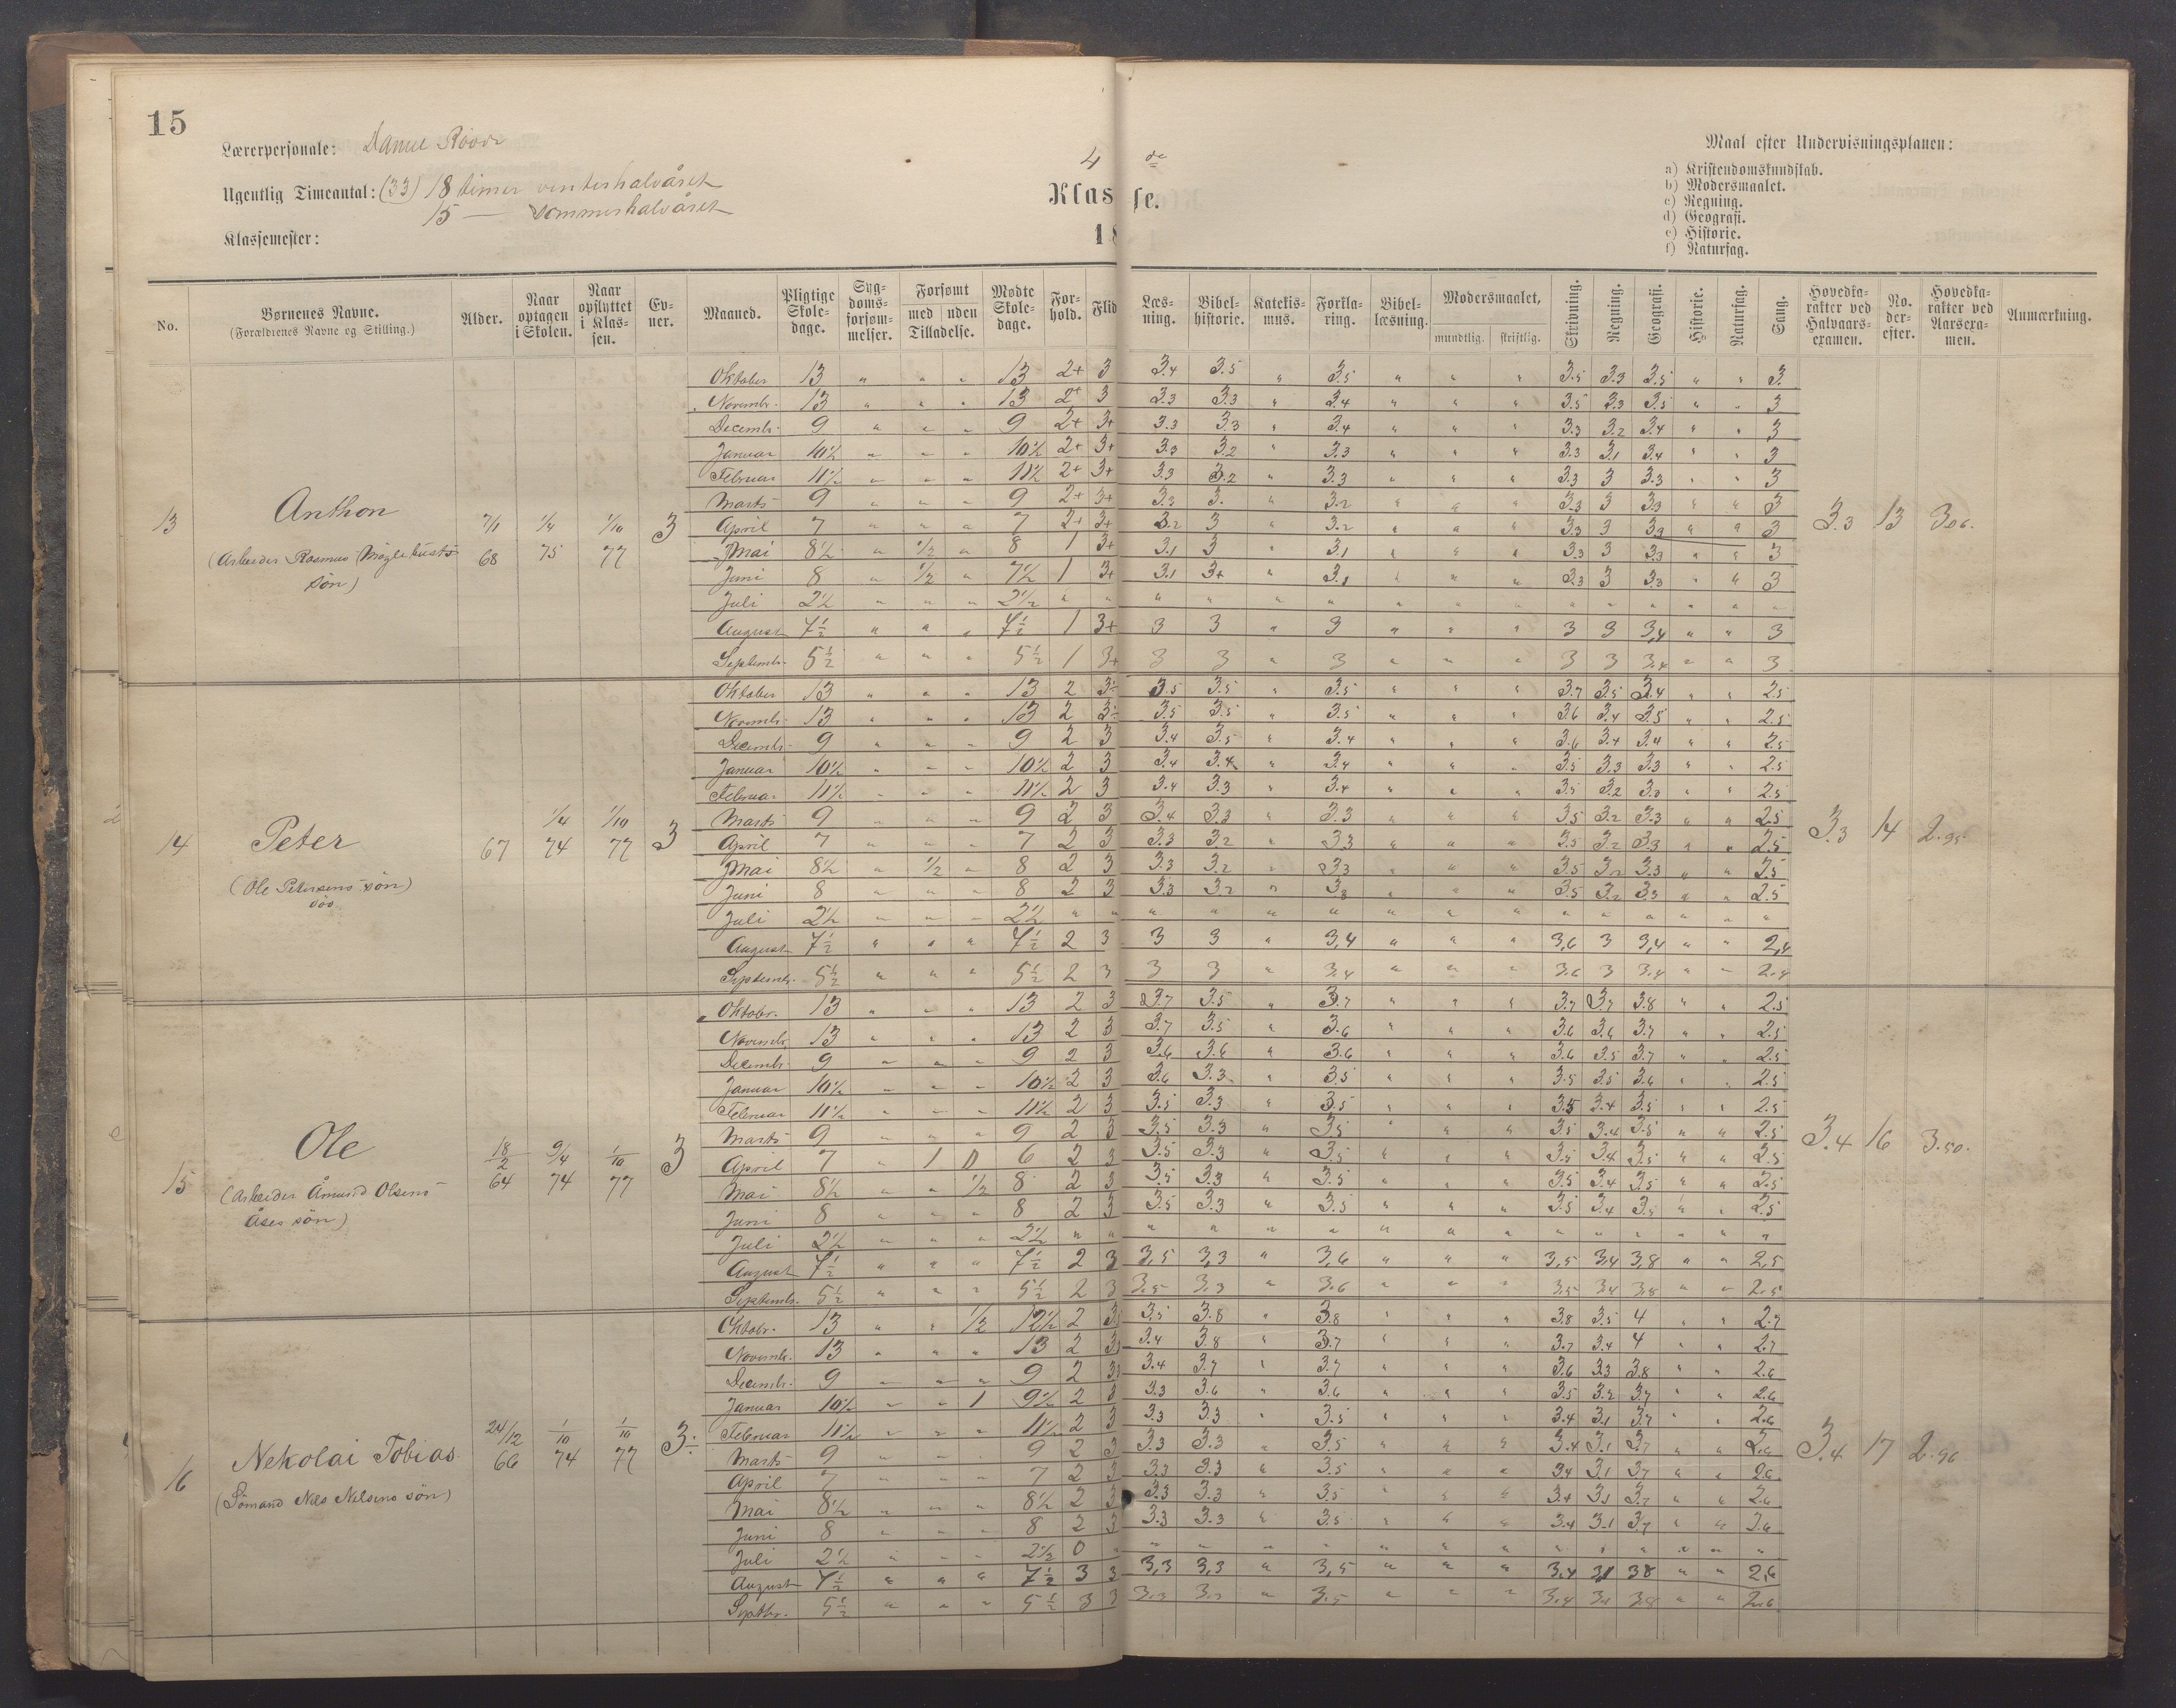 15
Lærerpersonale:
Ugentlig Timeantal: (33) 18 timer vinterhalvåret
15 — sommerhalvåret
Klassemester:
4 de
Klasse.
18
Maal efter Undervisningsplanen:
a) Kristendomskundskab.
b) Modersmaalet.
c) Regning.
d) Geografi.
e) Historie.
f) Naturfag.
No. Børnenes Navne. (Forældrenes Navne og Stilling.) Alder. Naar optagen i Skolen. Naar opflyttet i Klassen. Evner. Maaned. Pligtige Skoledage. Sygdomsforsømmelser. Forsømt med uden Tilladelse. Mødte Skoledage. Forhold. Flid
Læsning. Bibelhistorie. Katekismus. Forklaring. Bibellæsning. Modersmaalet, mundtlig. skriftlig. Skrivning. Regning. Geografi. Historie. Naturfag. Sang. Hovedkarakter ved Halvaarsexamen. No. derefter. Hovedkarakter ved Aarsexamen. Anmærkning.
13 Anthon 7/1 68 1/4 75 1/10 77 3
3.3 13 3.06.
Oktober 13 " " " 13 2+ 3 3.4 3.5 " 3.5 " " " 3.5 3.3 3.5 " " 3
Novembr. 13 " " " 13 2+ 3 3.3 3.3 " 3.4 " " " 3.5 3.3 3.5 " " 3
Decembr. 9 " " " 9 2+ 3+ 3.3 3.3 " 3.4 " " " 3.3 3.2 3.4 " " 3
Januar 10½ " " " 10½ 2+ 3+ 3.3 3.2 " 3.3 " " " 3.3 3.1 3.4 " " 3
Februar 11½ " " " 11½ 2+ 3+ 3.3 3.2 " 3.3 " " " 3.3 3 3.3 " " 3
Marts 9 " " " 9 2+ 3+ 3.3 3. " 3.2 " " " 3.3 3 3.3 " " 3
April 7 " " " 7 2+ 3+ 3.2 3 " 3.2 " " " 3.3 3 3.3 " " 3
Mai 8½ " ½ " 8 1 3+ 3.1 3 " 3.1 " " " 3.3 3 3.3 " " 3
Juni 8 " ½ " 7½ 1 3+ 3.1 3+ " 3.1 " " " 3.3 3 3.3 " " 3
Juli 2½ " " " 2½ " " " " " " " " " " " " " " "
August 7½ " " " 7½ 1 3+ 3 3 " 3 " " " 3 3 3,4 " " 3
Septembr. 5½ " " " 5½ 1 3+ 3 3 " 3 " " " 3 3 3.4 " " 3
14 Peter (Ole Petersens søn) 67 1/4 74 1/10 77 3
3.3 14 2.95
Oktober 13 " " " 13 2 3÷ 3.5 3.5 " 3.5 " " " 3.7 3.5 3.4 " " 2.5
Novembr. 13 " " " 13 2 3÷ 3.5 3.5 " 3.5 " " " 3.6 3.4 3.5 " " 2.5
Decembr. 9 " " " 9 2 3 3.4 3.5 " 3.4 " " " 3.6 3.4 3.4 " " 2.5
Januar 10½ " " " 10½ 2 3 3.4 3.4 " 3.4 " " " 3.5 3.3 3.3 " " 2.5
Februar 11½ " " " 11½ 2 3 3.4 3.3 " 3.4 " " " 3.5 3.2 3.3 " " 2.5
Marts 9 " " " 9 2 3 3.4 3.3 " 3.3 " " " 3.5 3.2 3.3 " " 2.5
April 7 " " " 7 2 3 3.3 3.2 " 3.3 " " " 3.5 3.2 3.3 " " 2.5
Mai 8½ " ½ " 8 2 3 3.3 3.2 " 3.3 " " " 3.5 3.2 3.3 " " 2.5
Juni 8 " " " 8 2 3 3.3 3.2 " 3.3 " " " 3.5 3.2 3.3 " " 2.5
Juli 2½ " " " 2½ " " " " " " " " " " " " " " "
August 7½ " " " 7½ 2 3 3 3 " 3,4 " " " 3,6 3 3,4 " " 2,4
Septembr. 5½ " " " 5½ 2 3 3 3 " 3.4 " " " 3.6 3 3.4 " " 2.4
15 Ole (Arbeider Åmund Olsens Åses søn) 18/2 64 9/4 74 1/10 77 3
3.4 16 3.50.
Oktobr. 13 " " " 13 2 3 3.7 3.5 " 3.7 " " " 3.7 3.7 3.8 " " 2.5
Novembr. 13 " " " 13 2 3 3.7 3.5 " 3.6 " " " 3.6 3.6 3.7 " " 2.5
Decembr. 9 " " " 9 2 3 3.6 3.6 " 3.6 " " " 3.6 3.5 3.7 " " 2.5
Januar 10½ " " " 10½ 2 3 3.6 3.3 " 3.5 " " " 3.5 3.5 3.6 " " 2.5
Februar 11½ " " " 11½ 2 3 3.5 3.3 " 3.5 " " " 3.5 3.4 3.5 " " 2.5
Marts 9 " " " 9 2 3 3.5 3.3 " 3.5 " " " 3.5 3.4 3.5 " " 2.5
April 7 " 1 0 6 2 3 3.5 3.3 " 3.5 " " " 3.5 3.4 3.5 " " 2.5
Mai 8½ " " ½ 8 2 3 3.5 3.3 " 3.5 " " " 3.5 3.4 3.5 " " 2.5
Juni 8 " " " 8 2 3 3.5 3.3 " 3.5 " " " 3.5 3.4 3.5 " " 2.5
Juli 2½ " " " 2½ " " " " " " " " " " " " " " "
August 7½ " " " 7½ 2 3 3,5 3,3 " 3,6 " " " 3,5 3,4 3,8 " " 2,5
Septembr. 5½ " " " 5½ 2 3 3.5 3.3 " 3.6 " " " 3.5 3.4 3.8 " " 2.5
16 Nekolai Tobias (Sømand Nils Nilsens søn) 24/12 66 1/10 74 1/10 77 3÷
3.4 17 2.96
Oktobr. 13 " " ½ 12½ 2 3 3.5 3.8 " 3.8 " " " 3.8 3.5 4 " " 2.7
Novembr. 13 " " " 13 2 3 3.4 3.8 " 3.7 " " " 3.7 3.4 4 " " 2.7
Decembr. 9 " " " 9 2 3 3.4 3.7 " 3.7 " " " 3.6 3.3 3.8 " " 2.6
Januar 10½ " " 1 9½ 2 3 3.3 3.6 " 3.6 " " " 3.5 3.2 3.7 " " 2.6
Februar 11½ " " " 11½ 2 3 3.3 3.3 " 3.5 " " " 3.4 3.1 3.7 " " 2.6
Marts 9 " " " 9 2 3 3.3 3.3 " 3.5 " " " 3.4 3.1 3.7 " " 2.6
April 7 " " " 7 2 3 3.3 3.3 " 3.5 " " " 3.4 3.1 3.7 " " 2.6
Mai 8½ " " " 8½ 2 3 3.3 3.3 " 3.5 " " " 3.4 3.1 3.7 " " 2.6
Juni 8 " " " 8 2 3 3.3 3.3 " 3.5 " " " 3.4 3.1 3.7 " " 2.6
Juli 2½ " " " 2½ 0 " " " " " " " " " " " " " "
August 7½ " " " 7½ 3 3 3,3 3,3 " 3,5 " " " 3,4 3,1 3,8 " " 2,6
Septbr. 5½ " " " 5½ 3 3 3.3 3.3 " 3.5 " " " 3.4 3.1 3.8 " " 2.6